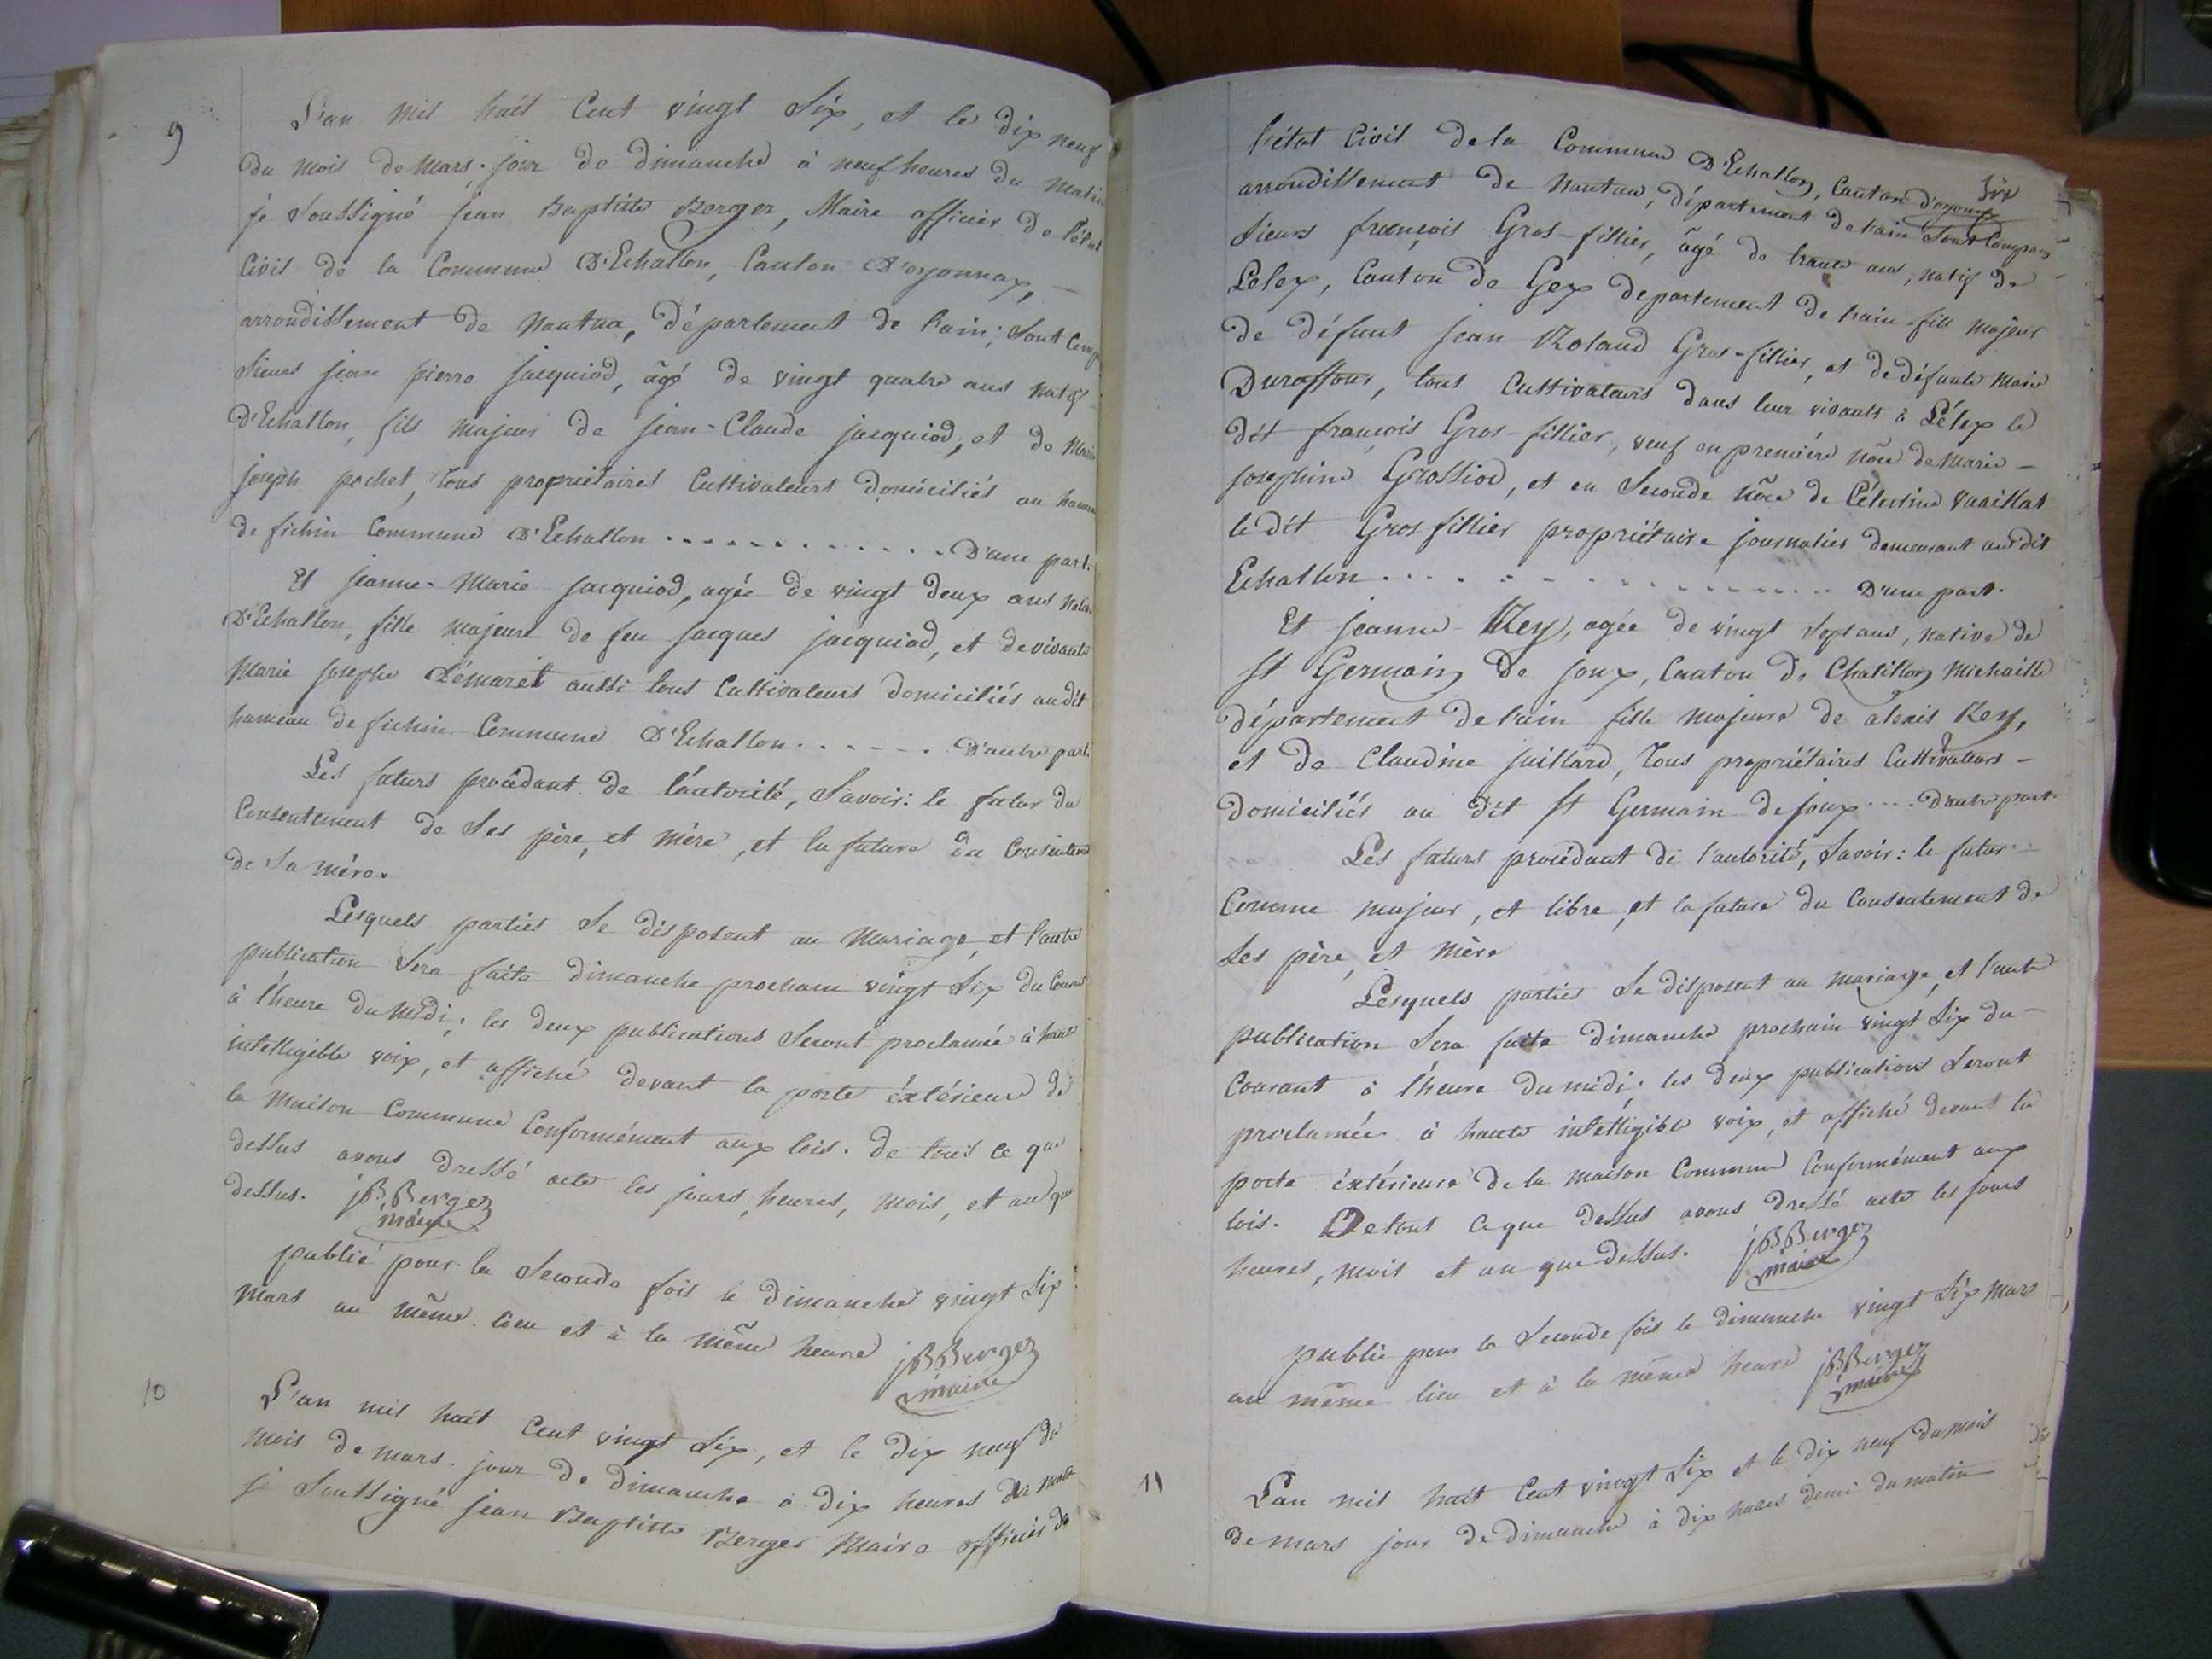 9
L'an mil huit Cent vingt Six, et le dix neuf
du mois de mars. jour de dimanche à neuf heures du matin
je Soussigné jean Baptiste Berger, Maire officier de l'état
Civil de la Commune D'Echallon, Canton D'oyonnax, —
arrondissement de Nantua, département de l'ain; Sont Comp
Sieurs jean pierre jacquiod, âgé de vingt quatre ans natif
D'Echallon, fils majeur de jean-Claude jacquiod, et de Marie
joseph pochet, Tous propriétaires Cultivateurs domiciliés au hameau
de fichin Commune D'Echallon . . . . . . . . . . . . D'une part.
Et jeanne-Marie jacquiod, agée de vingt deux ans native
D'Echallon, fille majeure de feu jacques jacquiod, et de vivante
Marie josephe Démaret aussi tous Cultivateurs domiciliés audit
hameau de fichin Commune D'Echallon . . . . . . D'autre part.
Les futurs procédant de l'autorité, Savoir: le futur du
Consentement de Ses père, et mère, et la future du Consentem
de Sa mère.
Lesquels parties Se disposent au Mariage, et l'autre
publication Sera faite dimanche prochain vingt Six du Courant
à l'heure du midi; les deux publications Seront proclamée à haute
intelligible voix, et affiché devant la porte éxtérieure de
la Maison Commune Conformément aux lois. de tout ce que
dessus avons dressé acte les jours, heures, mois, et an que
dessus. jBBerger
maire
publié pour la Seconde fois le dimanche vingt Six
mars au même lieu et à la même heure jBBerger
maire
10
L'an mil huit Cent vingt Six, et le dix neuf du
mois de mars. jour de dimanche à dix heures du matin
je Soussigné jean Baptiste Berger Maire officier de
Six
l'état Civil de la Commune D'Echallon, Canton d'oyonnax
arrondissement de Nantua, département de l'ain Sont Comparus
Sieurs françois Gros-fillier, âgé de trente ans, natif de
Lelex, Canton de Gex departement de l'ain fils majeur
de défunt jean Roland Gros-fillier, et de défunte Marie
Duraffour, tous Cultivateurs dans leur vivants à Lélex le
dit françois Gros-fillier, veuf en première nôce de Marie —
josephine Grossiod, et en Seconde nôce de Célestine vuaillat
le dit Gros fillier propriétaire journalier demeurant audit
Echallon . . . . . . . . . . . . . . . D'une part.
Et jeanne-Rey, agée de vingt Sept ans, native de
St Germain de joux, Canton de Chatillon Michaille
département de l'ain fille majeure de alexis Rey,
et de Claudine juillard, Tous propriétaires Cultivateurs —
domiciliés au dit St Germain de joux . . . . D'autre part.
Les futurs procédant de l'autorité, Savoir: le futur —
Comme majeur, et libre, et la future du Consentement de
Ses père, et mère
Lesquels parties Se disposent au mariage, et l'autre
publication Sera faite dimanche prochain vingt Six du —
Courant à l'heure du midi; les deux publications Seront
proclamée à haute intélligible voix, et affiché devant la
porte éxtérieure de la maison Commune Conformément aux
lois. De tout ce que dessus avons dressé acte les jours
heures, mois et an que dessus. jBBerger
maire
publié pour la Seconde fois le dimanche vingt Six mars
au même lieu et à la même heure jBBerger
maire
11
L'an mil huit Cent vingt Six et le dix neuf du mois
de mars jour de dimanche à dix heures demi du matin